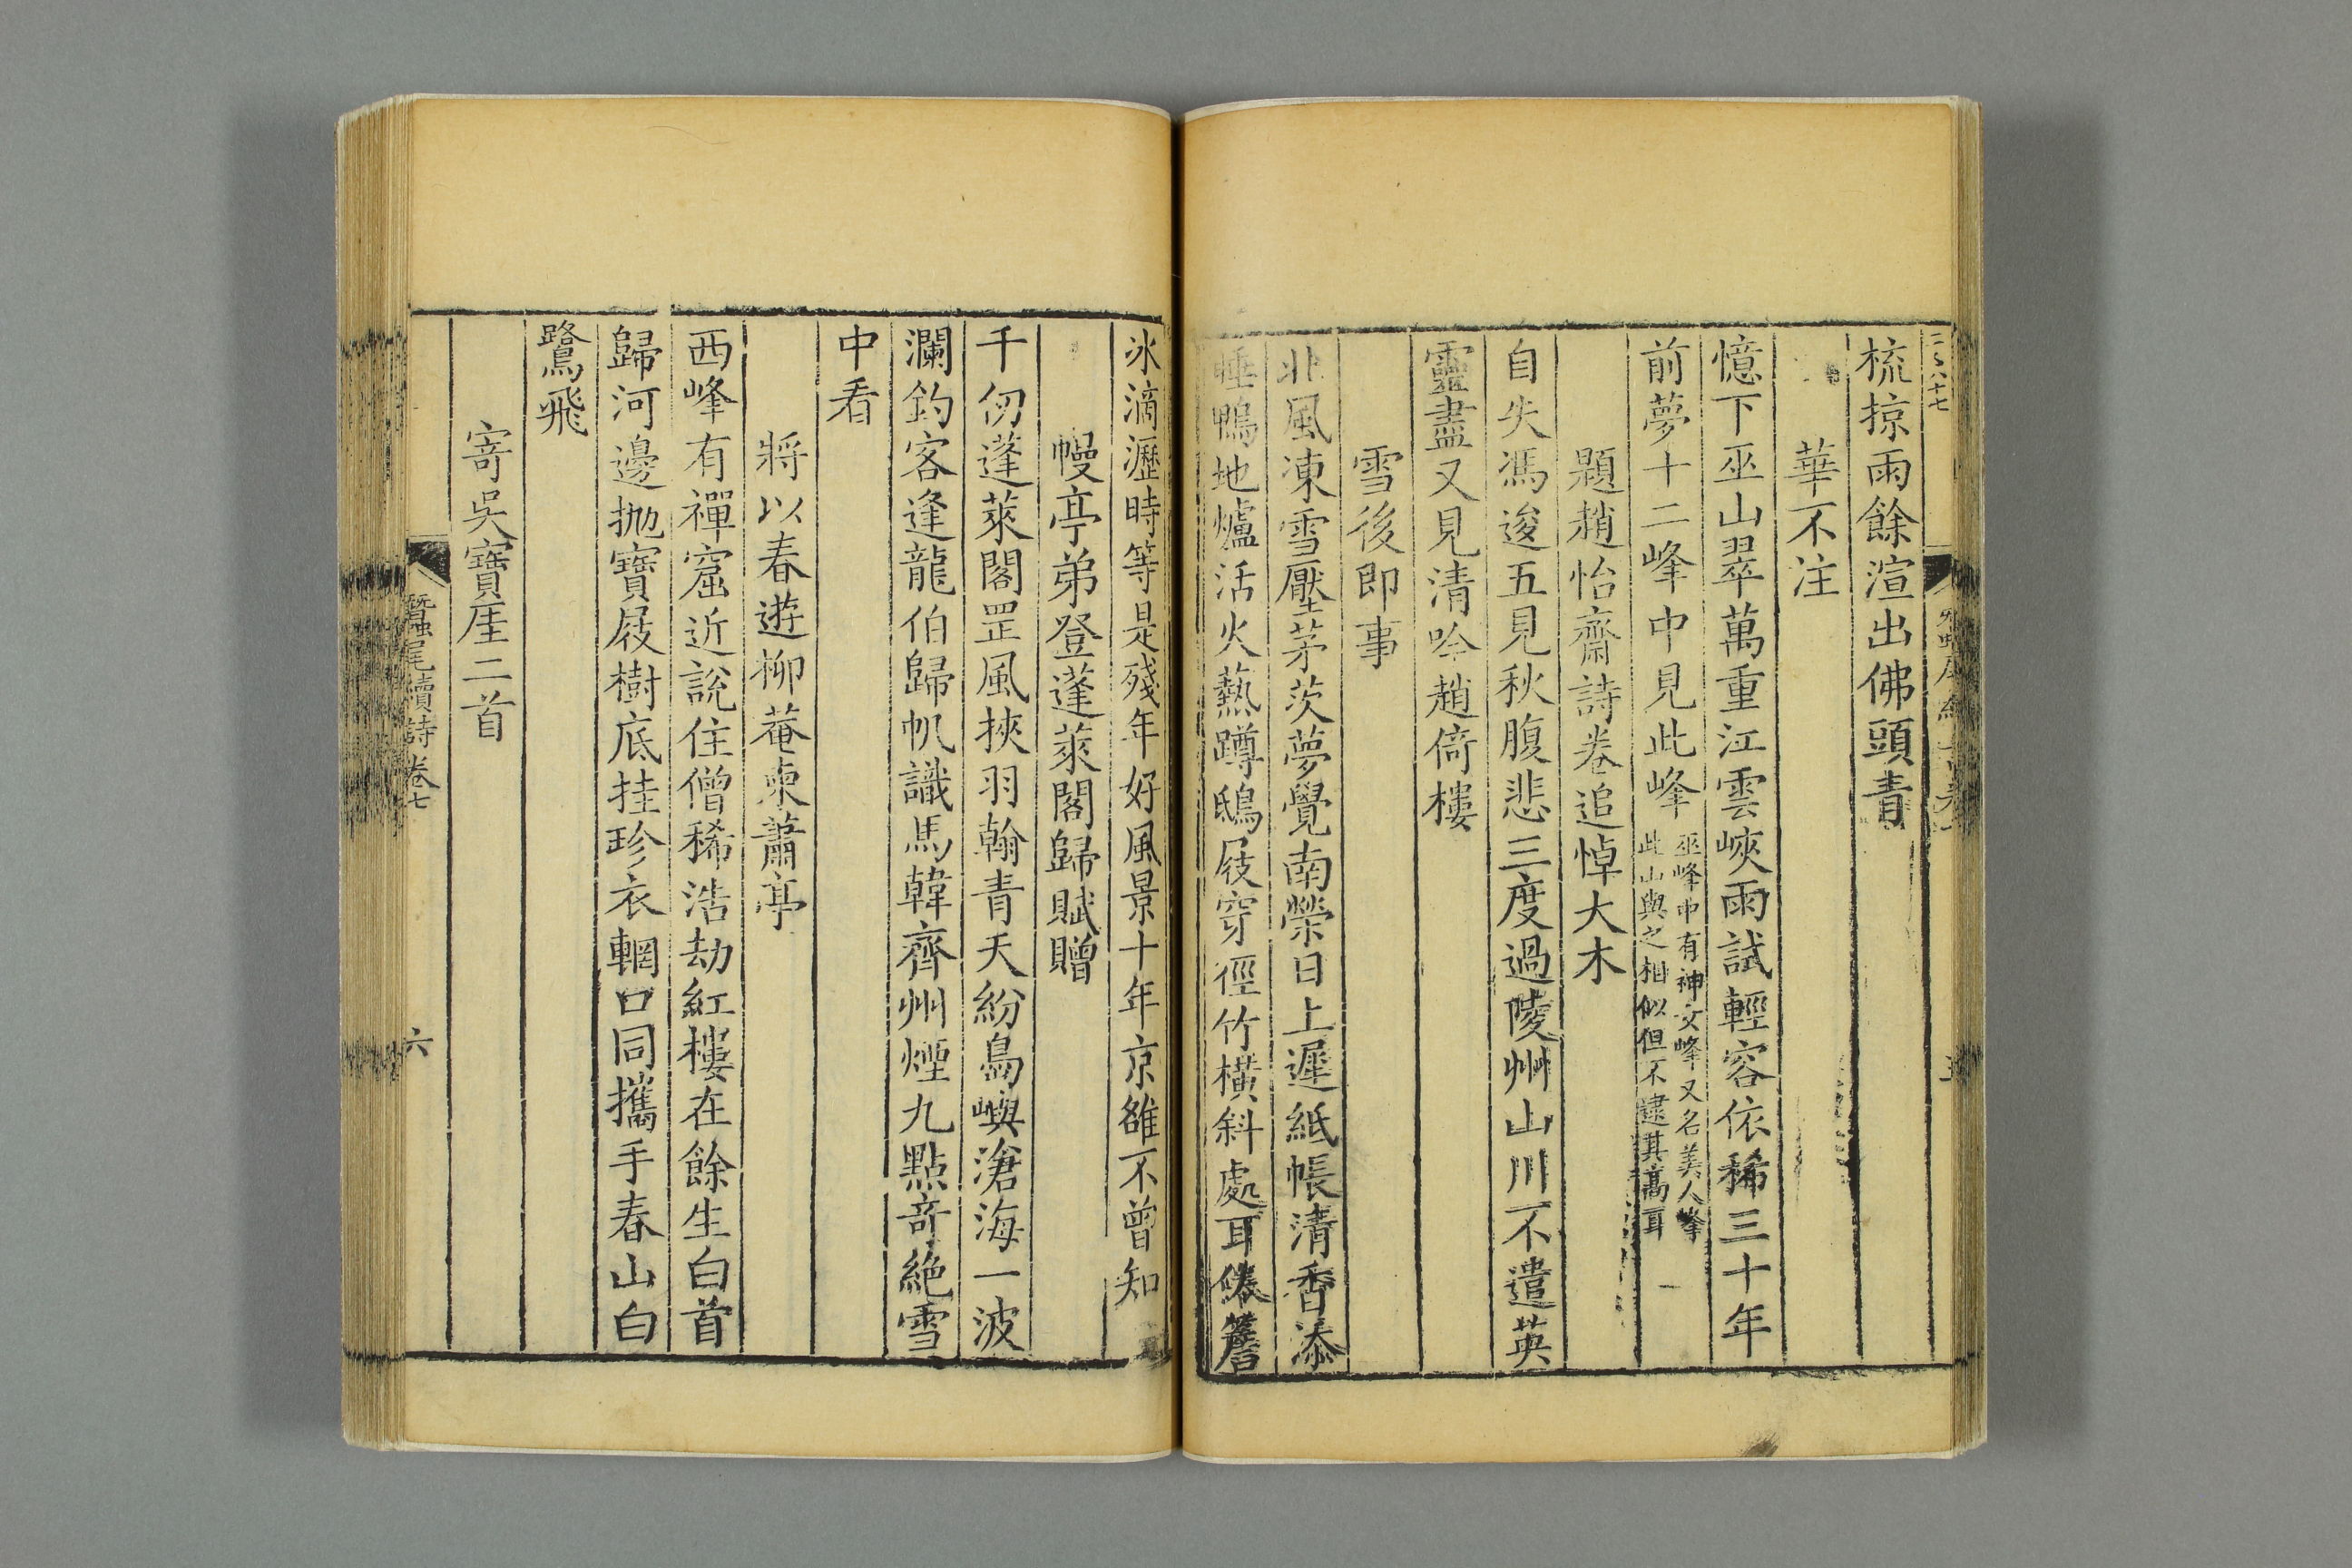 梳掠雨餘渲出佛頭青
華不注
憶下巫山翠萬重江雲峽雨試輕容依稀三十年
前夢十二峰中見此峰
巫峰中有神女峰又名美人峰
此山與之相似但不逮其高耳
題趙怡齋詩卷追悼大木
自失馮逡五見秋腹悲三度過陵州山川不遣英
靈盡又見清吟趙倚樓
雪後即事
北風凍雪壓茅茨夢覺南榮日上遲紙帳清香添
睡鴨地爐活火熱蹲鴟屐穿徑竹橫斜處耳倦簷
冰滴瀝時等是殘年好風景十年京雒不曾知
幔亭弟登蓬萊閣歸賦贈
千仞蓬萊閣罡風挾羽翰青天紛島嶼滄海一波
瀾釣客逢龍伯歸帆識馬韓齊州煙九點奇絕雪
中看
將以春遊柳菴柬蕭亭
西峰有禪窟近說住僧稀浩劫紅樓在餘生白首
歸河邊拋寶屐樹底挂珍衣輞口同攜手春山白
鷺飛
寄吳寶厓二首
蠶尾續詩卷七
六